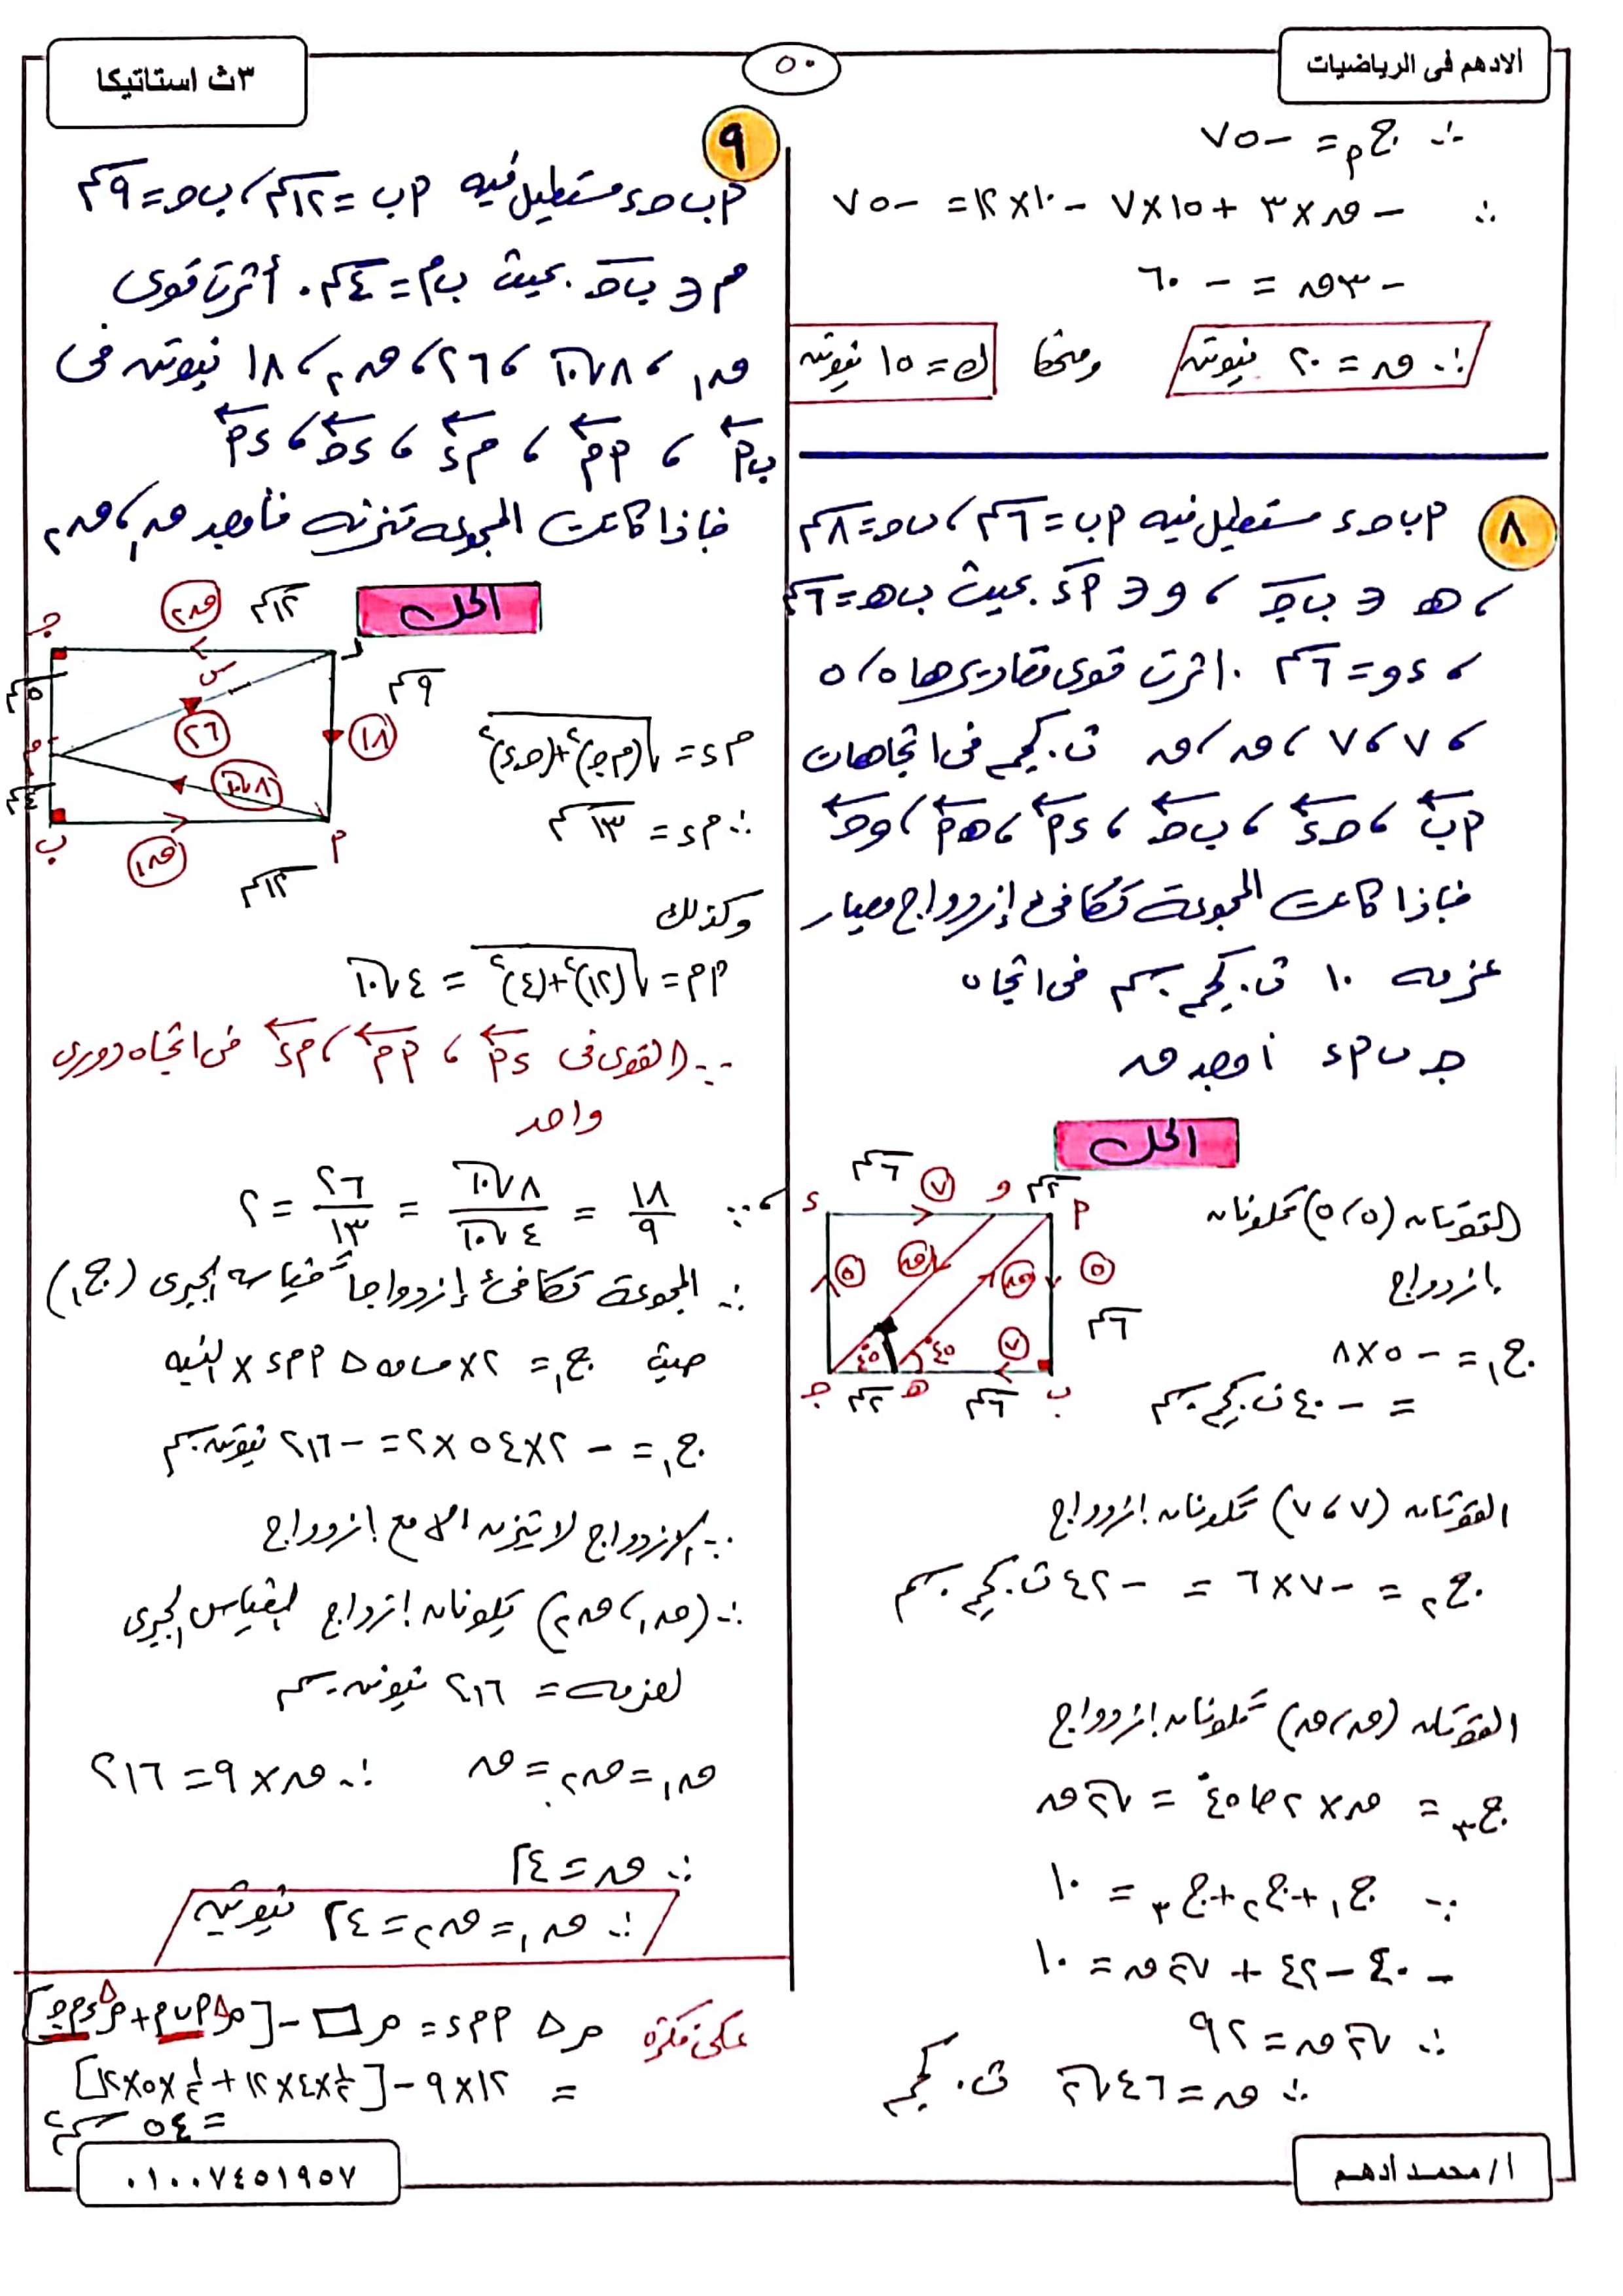 الادهم فى الرياضيات
٥٠
٣ث استاتيكا
∴ ج م = -٧٥
∴ -ق × ٣ + ١٥ × ٧ - ١٠ × ١٢ = -٧٥
-٣ق = -٦٠
∴ ق = ٢٠ نيوتن ومنها ك = ١٥ نيوتن
٨
أ ب ج د مستطيل فيه أ ب = ٦ سم ، ب ج = ٨ سم
، هـ ∈ ب ج ، و ∈ أ د بحيث ب هـ = ٦ سم
، د و = ٦ سم . اثرت قوى مقاديرها ٥ ، ٥
، ٧ ، ٧ ، ق ، ق ث.كجم فى اتجاهات
أ ب ، ج د ، ب ج ، د أ ، هـ أ ، و ج
فإذا كانت المجموعة تكافئ إزدواج معيار
عزمه ١٠ ث.كجم.سم فى اتجاه
ج ب أ د أوجد ق
الحل
د ٦ سم ٧ و ٢ سم أ
٥ ق ق ٥ ٦ سم
٤٥ ٤٥ ٧
ج ٢ سم هـ ٦ سم ب
القوتان (٥ ، ٥) تكونان
ازدواج
ج١ = -٥ × ٨
= -٤٠ ث.كجم.سم
القوتان (٧ ، ٧) تكونان ازدواج
ج٢ = -٧ × ٦ = -٤٢ ث.كجم.سم
القوتان (ق ، ق) تكونان ازدواج
ج٣ = ق × ٢ حا ٤٥° = √٢ ق
∵ ج١ + ج٢ + ج٣ = ١٠
-٤٠ - ٤٢ + √٢ ق = ١٠
∴ √٢ ق = ٩٢
∴ ق = ٤٦√٢ ث.كجم
٩
أ ب ج د مستطيل فيه أ ب = ١٢ سم ، ب ج = ٩ سم
م ∈ ب ج بحيث ب م = ٤ سم . أثرت قوى
ق١ ، ٨√١٠ ، ٢٦ ، ق٢ ، ١٨ نيوتن فى
ب أ ، أ م ، م د ، د ج ، د أ
فإذا كانت المجموعة تتزن فأوجد ق١ ، ق٢
الحل
ج ق٢ ١٢ سم د
٥ سم س ٩ سم
م ٢٦ ١٨
٨√١٠
ب ق١ ١٢ سم أ
م د = √((م ج)٢ + (ج د)٢)
∴ م د = ١٣ سم
وكذلك
أ م = √((١٢)٢ + (٤)٢) = ٤√١٠
∵ القوى فى د أ ، أ م ، م د فى اتجاه دورى
واحد
، ∵ ١٨/٩ = ٨√١٠/٤√١٠ = ٢٦/١٣ = ٢
∴ المجموعة تكافئ إزدواجاً قياسه الجبرى (ج١)
حيث ج١ = ٢ × مساحة △ أ م د × النسبة
ج١ = -٢ × ٥٤ × ٢ = -٢١٦ نيوتن.سم
∵ الازدواج لا يتزن الا مع ازدواج
∴ (ق١ ، ق٢) يكونان ازدواج القياس الجبرى
لعزمه = ٢١٦ نيوتن.سم
ق١ = ق٢ = ق ∴ ق × ٩ = ٢١٦
∴ ق = ٢٤
∴ ق١ = ق٢ = ٢٤ نيوتن
م △ أ م د = م ▭ - [م △ أ ب م + م △ د م ج]
= ١٢ × ٩ - [١/٢ × ٤ × ١٢ + ١/٢ × ٥ × ١٢]
= ٥٤ سم٢
أ/ محمد ادهم
٠١٠٠٧٤٥١٩٥٧